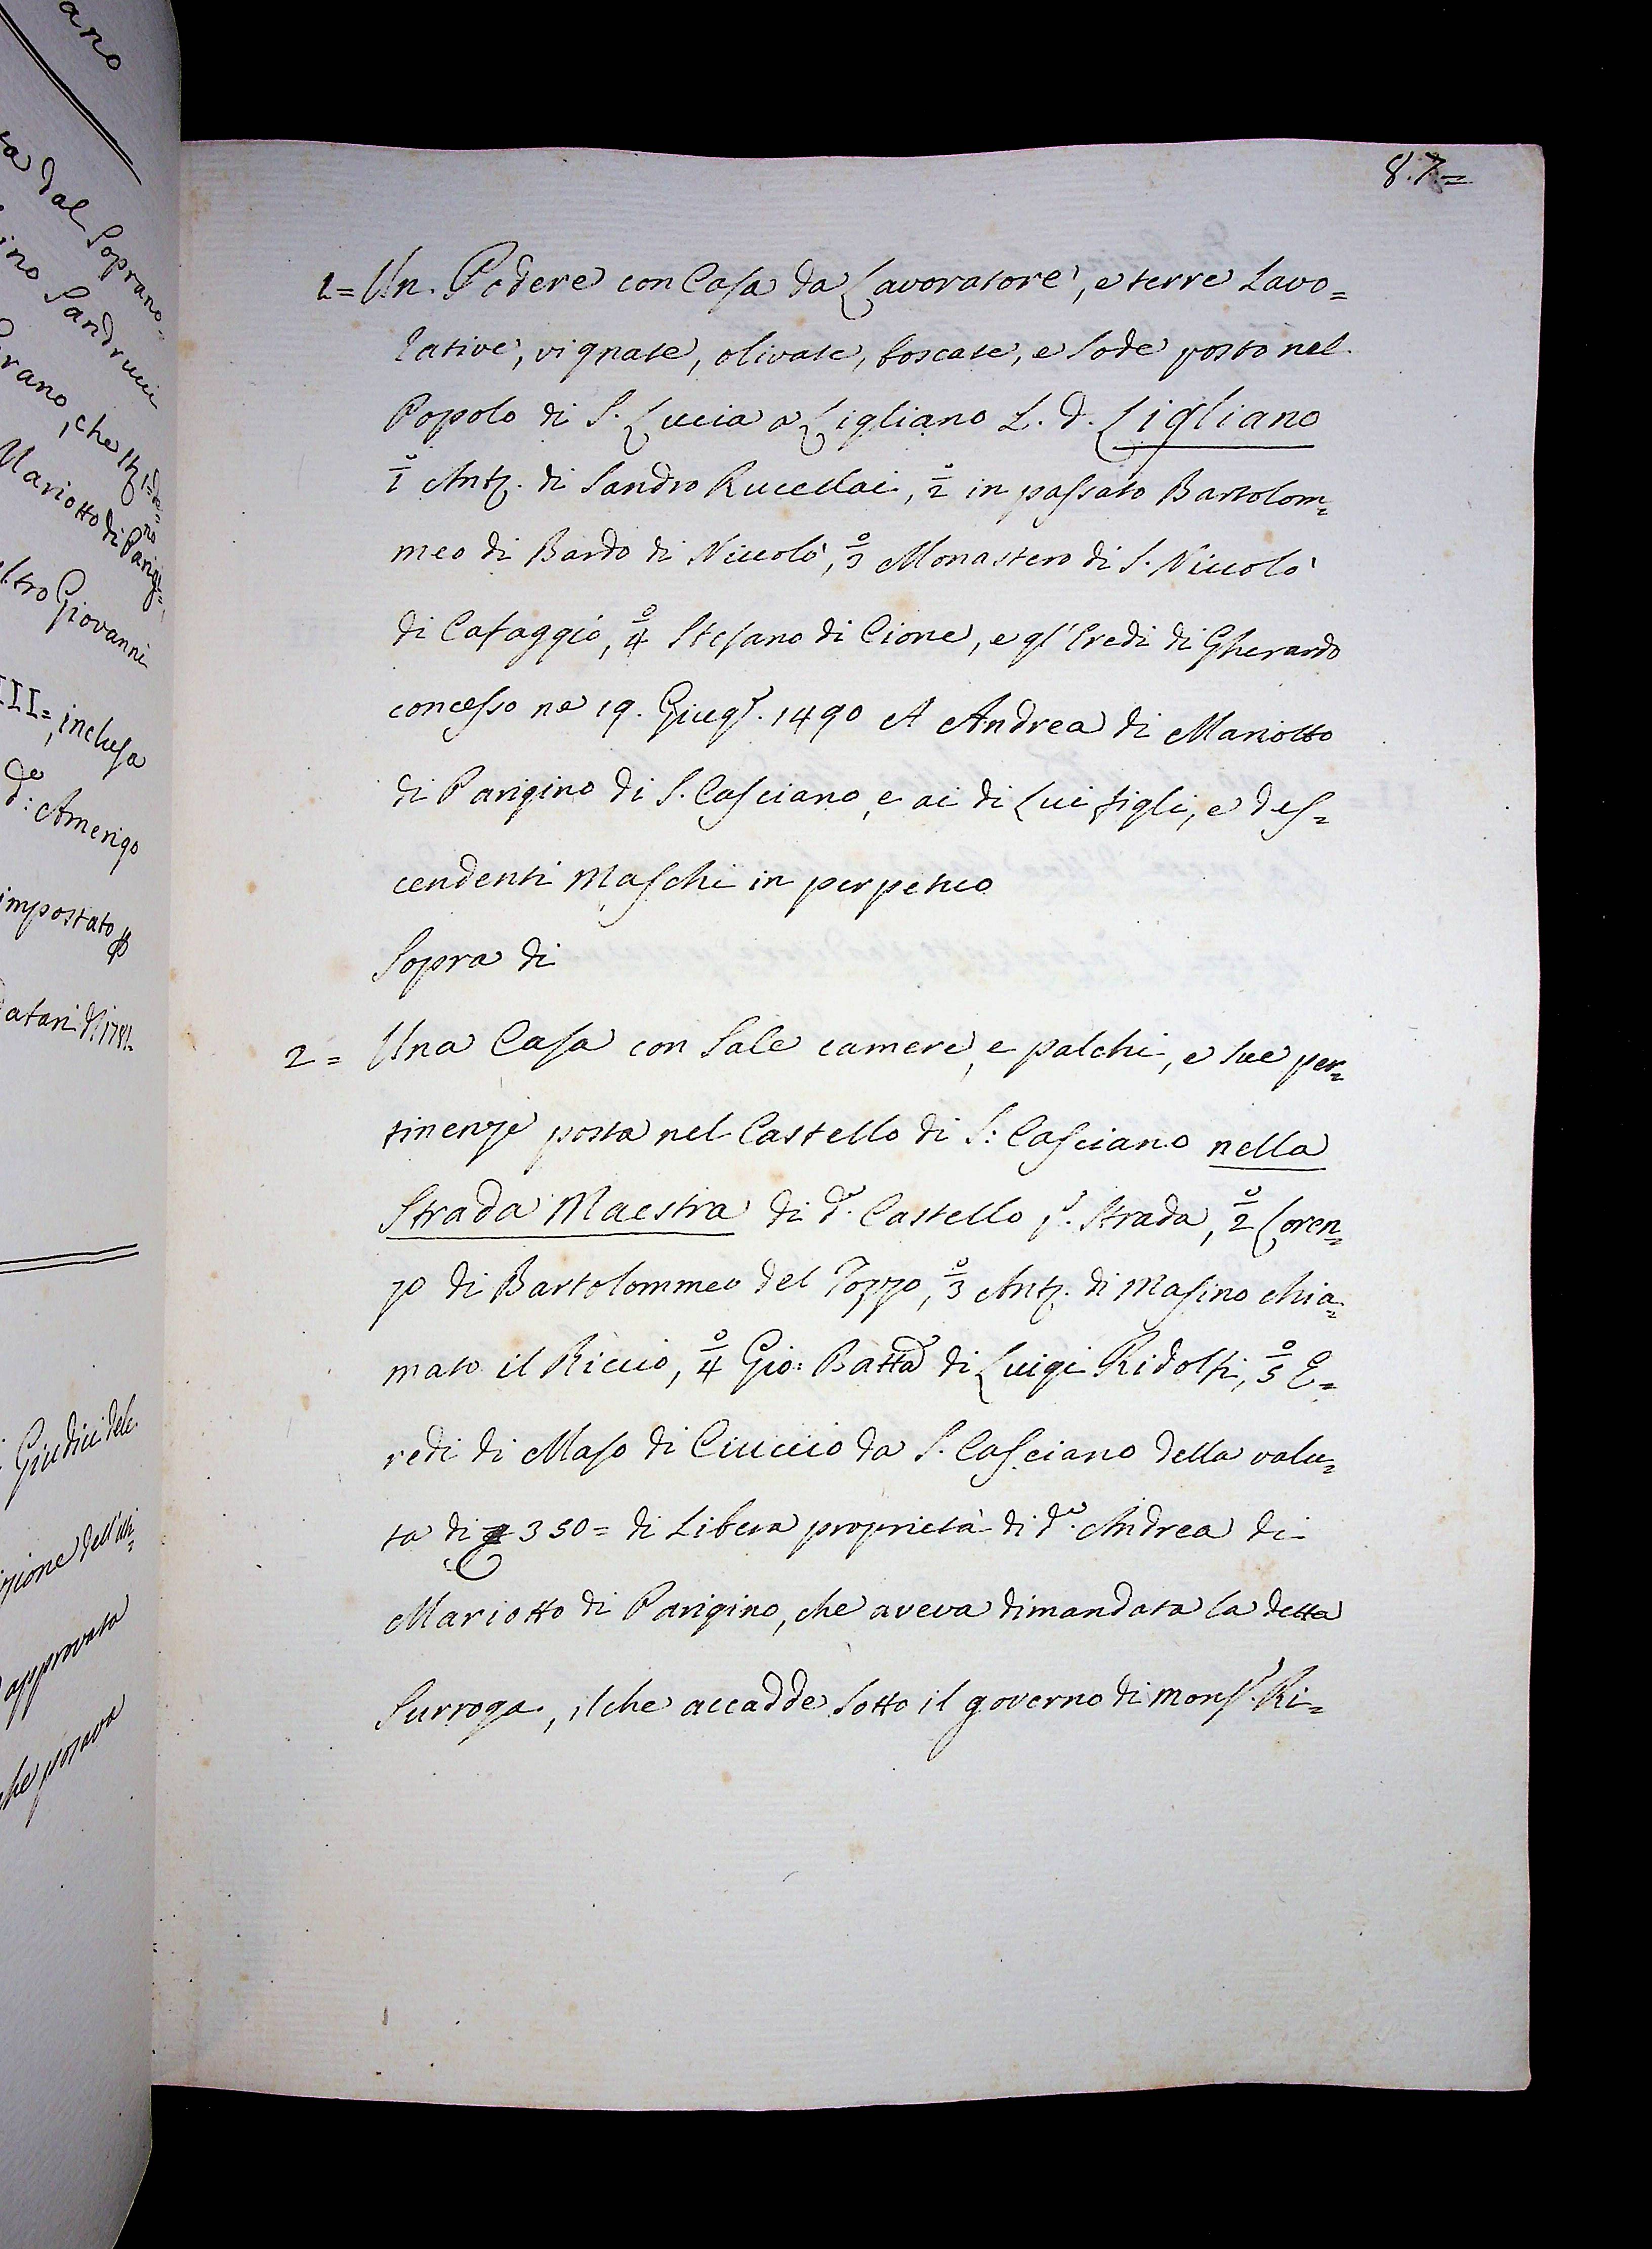 ano
ta dal Soprano=
ino Sandrucci
Mariotto di Parigi=
ltro Giovanni
III=, inclusa
de: Amerigo
impostato
atari di 1781.
Giudici dele
zione dell'
approvata
che posava
87=
1= Un. Podere con Casa da Lavoratore, e terre Lavo=
rative, vignate, olivate, boscate, e Sode posto nel
Popolo di S. Lucia a Cigliano L. d. Cigliano
1° Antº. di Sandro Rucellai, 2° in passato Bartolom=
meo di Bardo di Niccolò, 3° Monastero di S. Niccolò
di Cafaggio, 4° Stefano di Cione, e gl'Eredi di Gherardo
concesso ne 19. Giugº. 1490 A Andrea di Mariotto
di Parigino di S. Casciano, e ai di Lui figli, e des=
cendenti Maschi in perpetuo
Sopra di
2= Una Casa con Sale camere, e palchi, e sue per=
tinenze posta nel Castello di S: Casciano nella
Strada Maestra di dº. Castello pº. Strada, 2° Loren=
zo di Bartolommeo del Pozzo, 3° Antº. di Masino chia=
mato il Riccio, 4° Gio: Batta di Luigi Ridolfi, 5° E=
redi di Maso di Ciuccio da S. Casciano della valu=
ta di 350= di Libera proprietà di dº. Andrea di
Mariotto di Parigino, che aveva dimandata la detta
Surroga, il che accadde sotto il governo di Monsº. Ri=